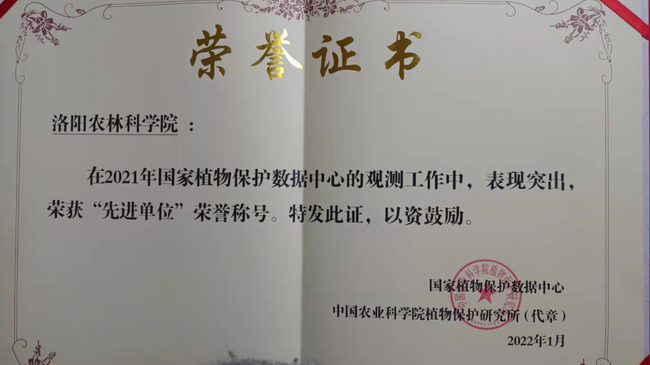 荣誉证书
洛阳农林科学院：
在2021年国家植物保护数据中心的观测工作中，表现突出，
荣获“先进单位”荣誉称号。特发此证，以资鼓励。
国家植物保护数据中心
中国农业科学院植物保护研究所（代章）
2022年1月